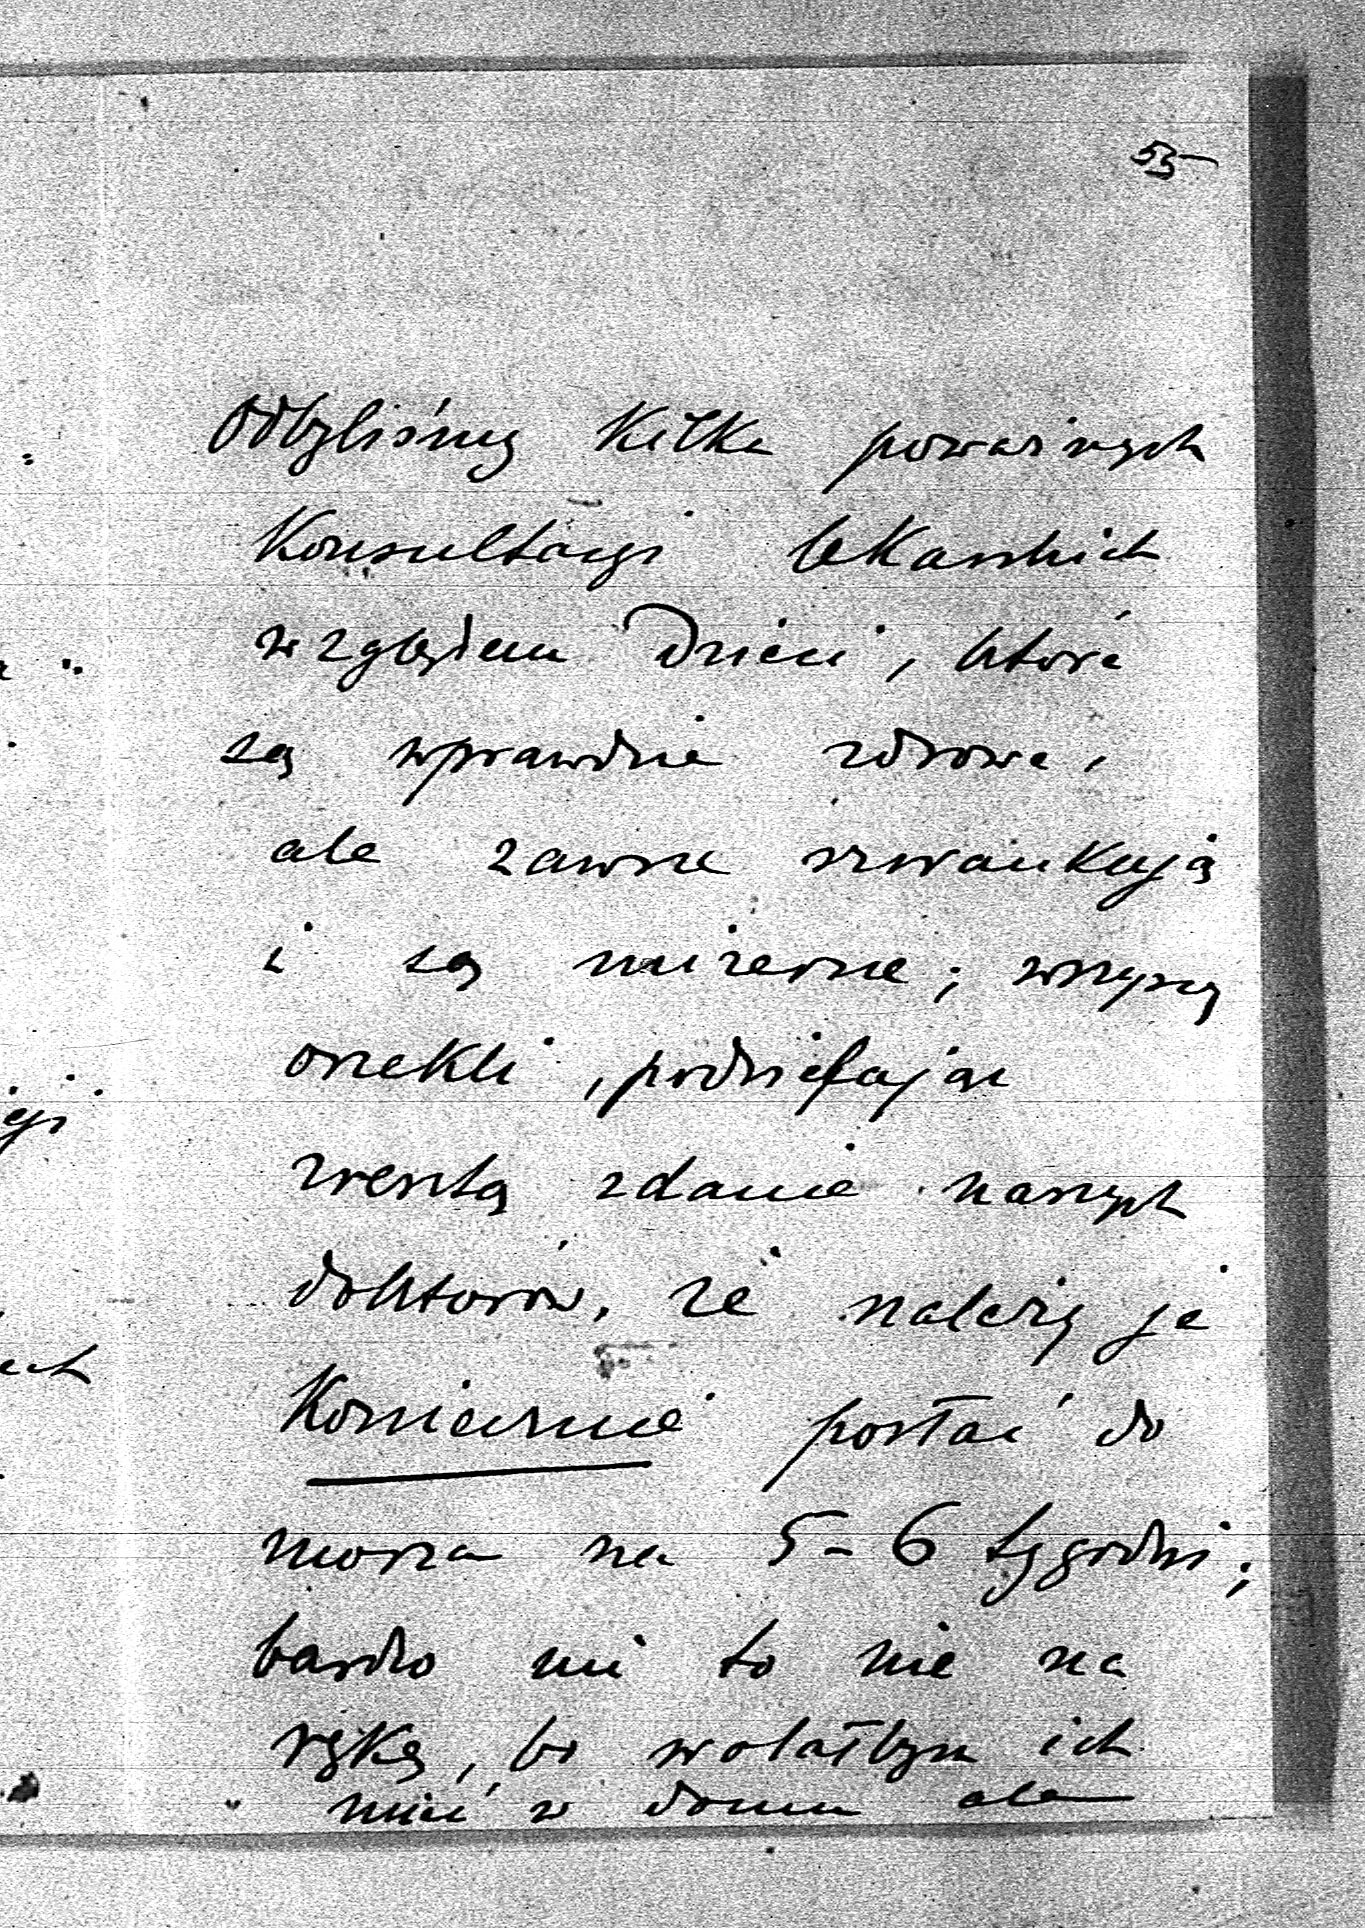 53
Odbyliśmy kilka poważnych
konsultacyi lekarskich
względem dzieci, które
są wprawdzie zdrowe,
ale zawsze szwankują
i są mizerne; wszyscy
orzekli, podzielając
zresztą zdanie naszych
doktorów, że należy je
koniecznie posłać do
morza na 5-6 tygodni;
bardzo mi to nie na
rękę, bo wolałbym ich
mieć w domu ale